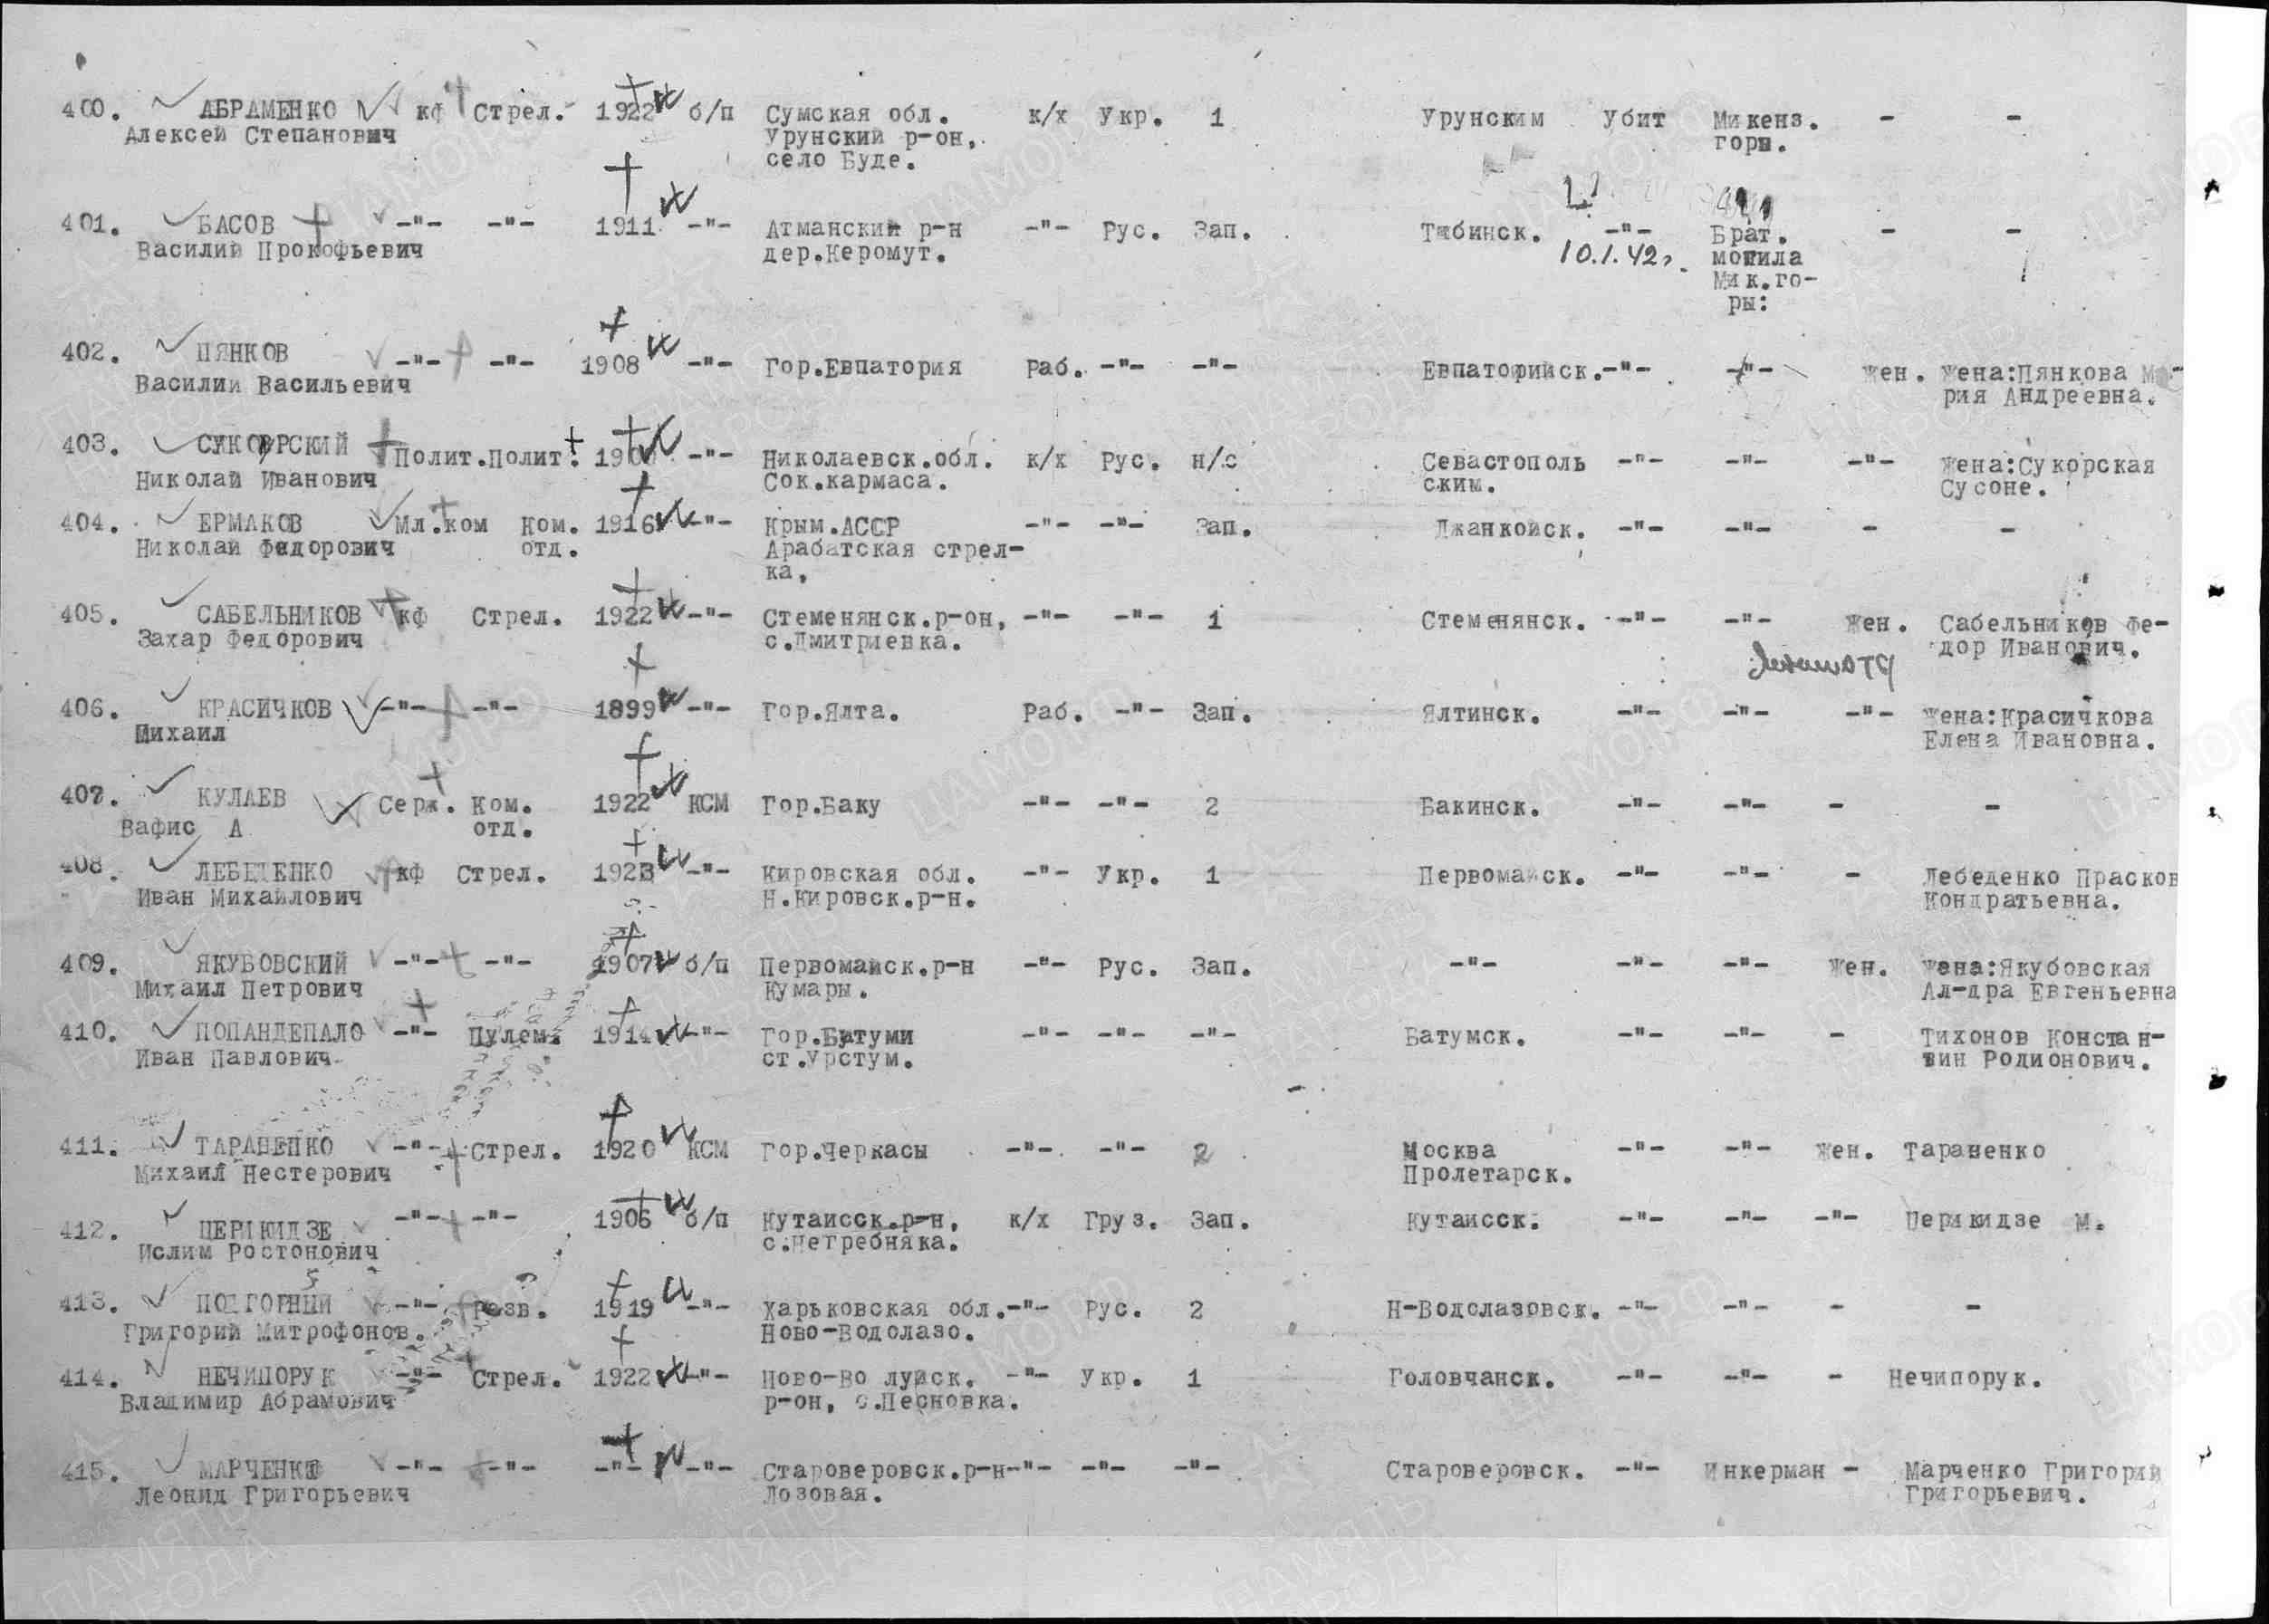 400. АБРАМЕНКО кф Стрел. 1922 б/п Сумская обл. к/х Укр. 1 Урунским Убит Микенз. - -
Алексей Степанович Урунский р-он, горы.
село Буде.
401. БАСОВ -"- -"- 1911 -"- Атманский р-н -"- Рус. Зап. Тябинск. -"- Брат. - -
Василий Прокофьевич дер.Керомут. 10.1.42г. могила
Мик.го-
ры:
402. ПЯНКОВ -"- -"- 1908 -"- Гор.Евпатория Раб. -"- -"- Евпаторийск. -"- -"- Жен. Жена:Пянкова Ма-
Василий Васильевич рия Андреевна.
403. СУКОРСКИЙ Полит. Полит. -"- Николаевск.обл. к/х Рус. н/с Севастополь -"- -"- -"- Жена:Сукорская
Николай Иванович Сок.кармаса. ским. Сусоне.
404. ЕРМАКОВ Мл.ком Ком. 1916 -"- Крым.АССР -"- -"- Зап. Джанкойск. -"- -"- - -
Николай Федорович отд. Арабатская стрел-
ка,
405. САБЕЛЬНИКОВ кф Стрел. 1922 -"- Стеменянск.р-он, -"- -"- 1 Стеменянск. -"- -"- Жен. Сабельников Фе-
Захар Федорович с.Дмитриевка. дор Иванович.
406. КРАСИЧКОВ -"- -"- 1899 -"- Гор.Ялта. Раб. -"- Зап. Ялтинск. -"- -"- -"- Жена:Красичкова
Михаил Елена Ивановна.
407. КУЛАЕВ Серж. Ком. 1922 КСМ Гор.Баку -"- -"- 2 Бакинск. -"- -"- - -
Вафис А отд.
408. ЛЕБЕДЕНКО кф Стрел. 1923 -"- Кировская обл. -"- Укр. 1 Первомайск. -"- -"- - Лебеденко Прасков
Иван Михайлович Н.Кировск.р-н. Кондратьевна.
409. ЯКУБОВСКИЙ -"- -"- 1907 б/п Первомайск.р-н -"- Рус. Зап. -"- -"- -"- Жен. Жена:Якубовская
Михаил Петрович Кумары. Ал-дра Евгеньевна
410. ПОПАНДЕПАЛО -"- Пулем. 1914 -"- Гор.Батуми -"- -"- -"- Батумск. -"- -"- - Тихонов Констан-
Иван Павлович ст.Урстум. тин Родионович.
411. ТАРАНЕНКО -"- Стрел. 1920 КСМ Гор.Черкасы -"- -"- 2 Москва -"- -"- Жен. Тараненко
Михаил Нестерович Пролетарск.
412. ЦЕРИКИДЗЕ -"- -"- 1906 б/п Кутаисск.р-н, к/х Груз. Зап. Кутаисск. -"- -"- -"- Церикидзе М.
Ислим Ростонович с.Негребняка.
413. ПОДГОРНЫЙ -"- Розв. 1919 -"- Харьковская обл. -"- Рус. 2 Н-Водолазовск. -"- -"- - -
Григорий Митрофонов. Ново-Водолазо.
414. НЕЧИПОРУК -"- Стрел. 1922 -"- Ново-Во луйск. -"- Укр. 1 Головчанск. -"- -"- - Нечипорук.
Владимир Абрамович р-он, с.Песновка.
415. МАРЧЕНКО -"- -"- -"- -"- Староверовск.р-н -"- -"- -"- Староверовск. -"- Инкерман - Марченко Григорий
Леонид Григорьевич Лозовая. Григорьевич.